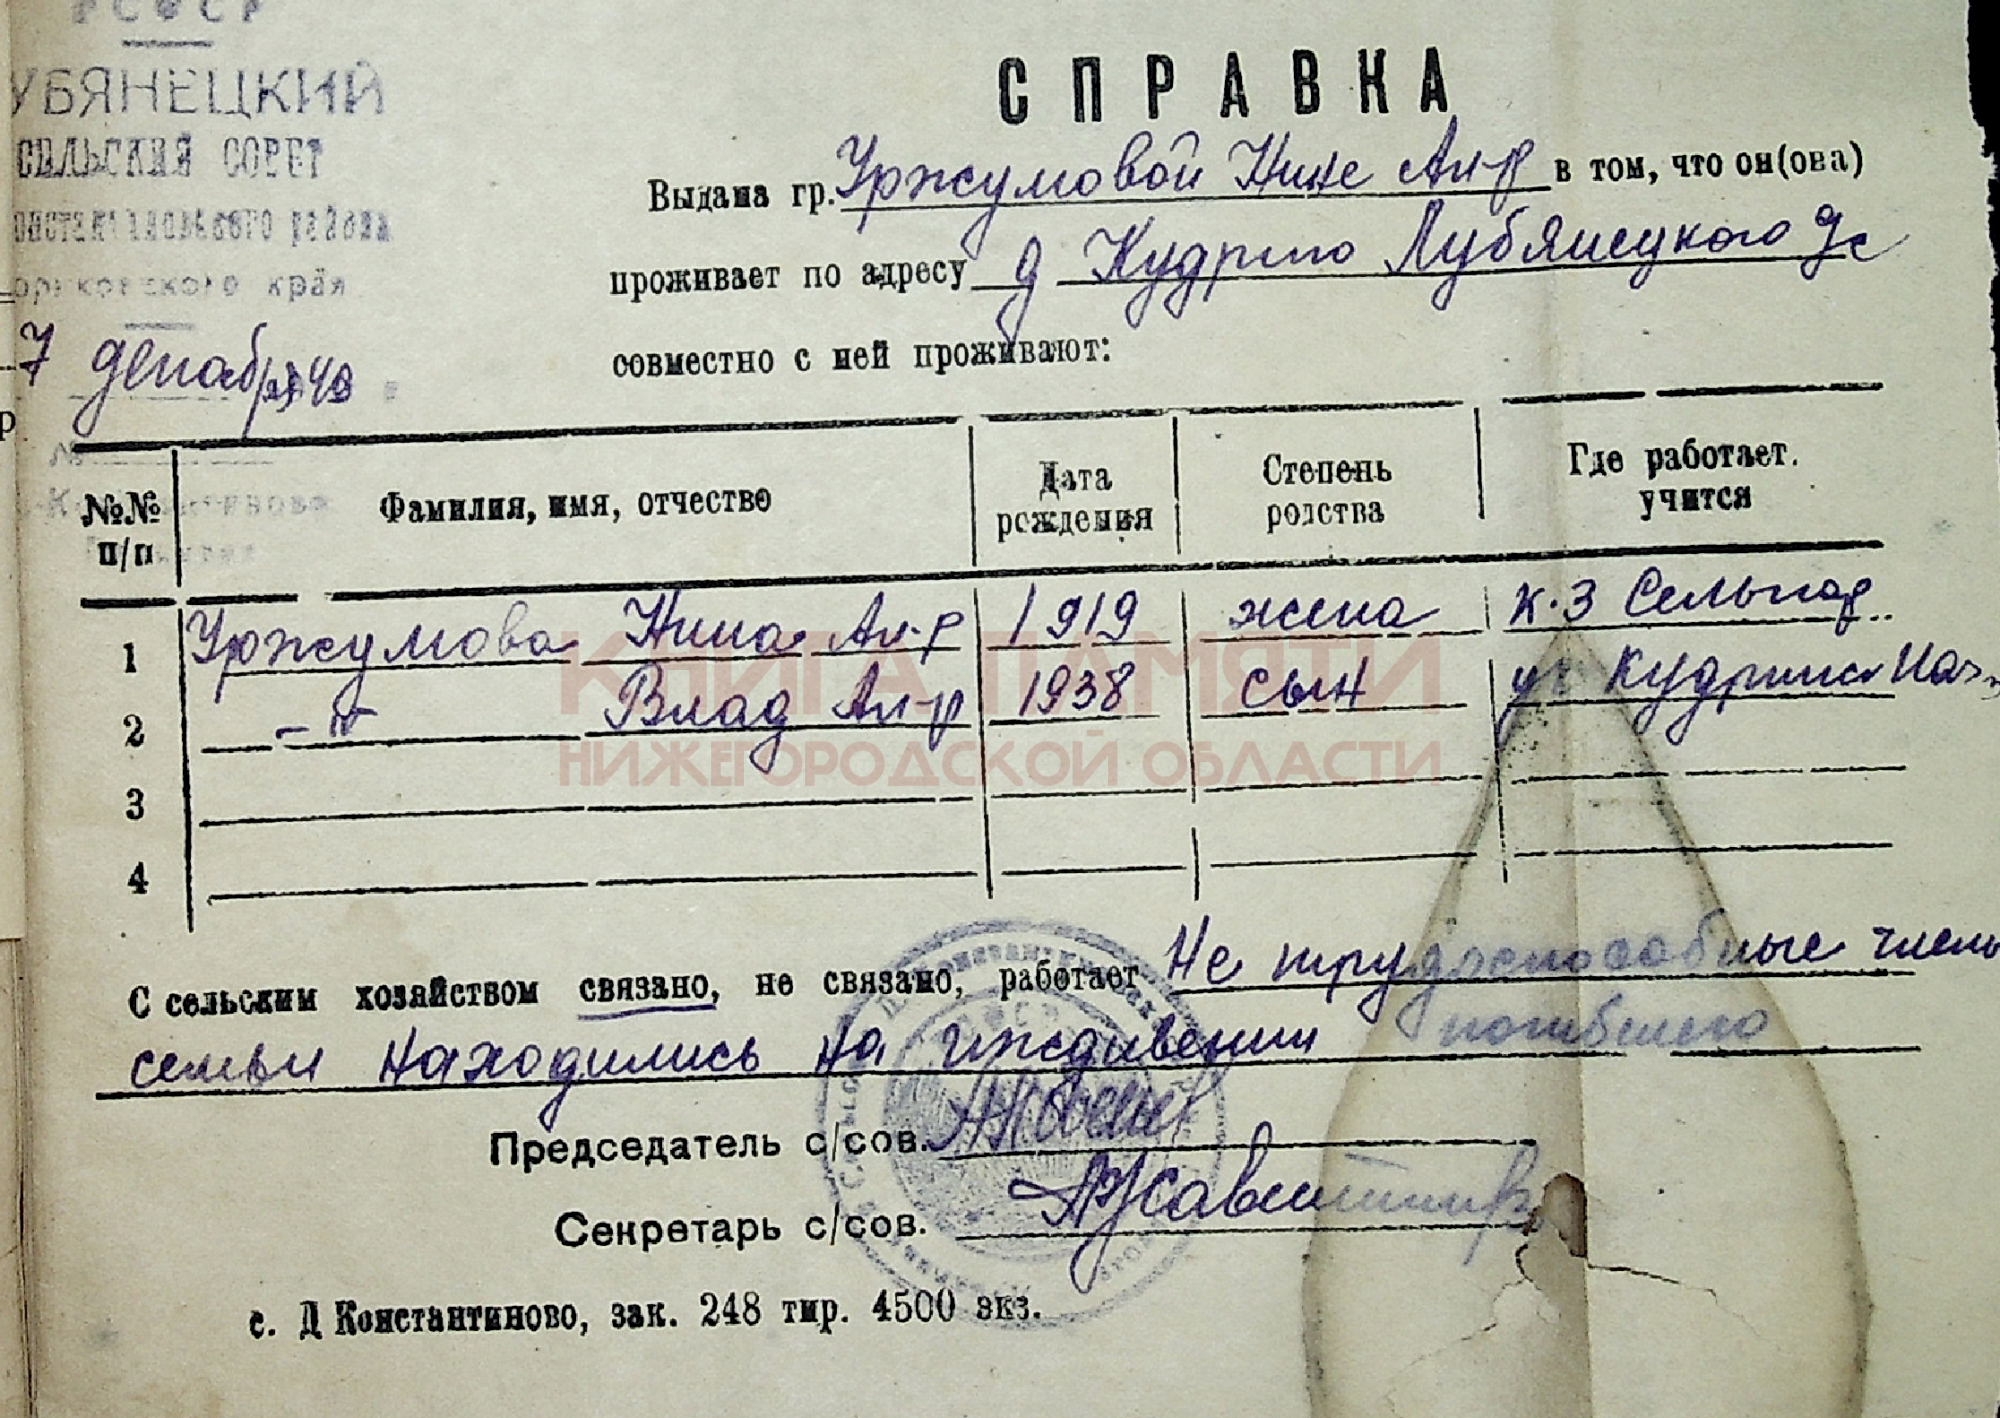 РСФСР
УБЯНЕЦКИЙ
СЕЛЬСКИЙ СОВЕТ
района
края
7 декабря 49
№
СПРАВКА
Выдана гр. Уржумовой Нине Ал-р в том, что он(ова)
проживает по адресу д Кудрино Лубянецкого
совместно с ней проживают:
№№ п/п Фамилия, имя, отчество Дата рождения Степень родства Где работает. учится
1 Уржумова Нина Ал-р 1919 жена к-з
2 -"- Влад Ал-р 1938 сын уч Кудринск нач.
3
4
КНИГА ПАМЯТИ
НИЖЕГОРОДСКОЙ ОБЛАСТИ
С сельским хозяйством связано, не связано, работает Не трудоспособные члены
семьи находились на иждивении погибшего
Председатель с/сов.
Секретарь с/сов.
с. Д Константиново, зак. 248 тир. 4500 экз.